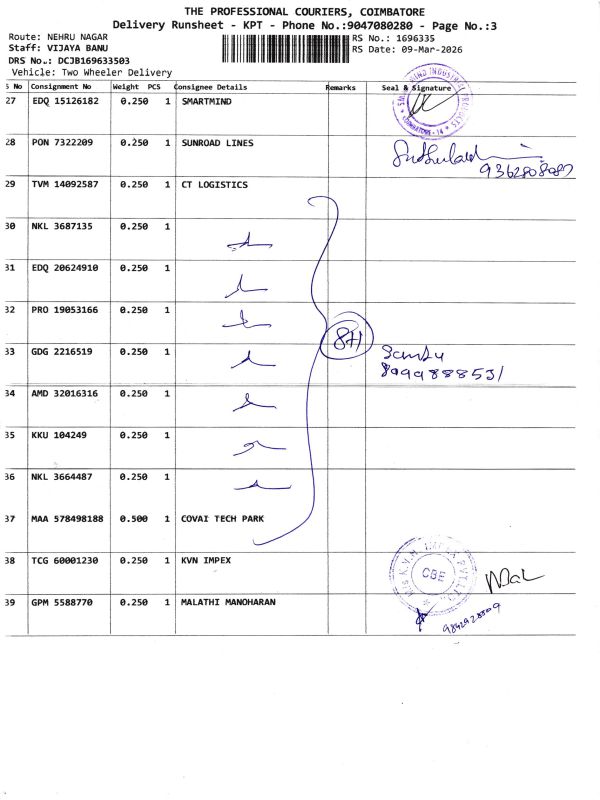 THE PROFESSIONAL COURIERS, COIMBATORE
Delivery Runsheet - KPT - Phone No.:9047080280 - Page No.:3
Route: NEHRU NAGAR
RS No.: 1696335
Staff: VIJAYA BANU
RS Date: 09-Mar-2026
DRS No.: DCJB169633503
Vehicle: Two Wheeler Delivery
S No Consignment No Weight PCS Consignee Details Remarks Seal & Signature
27 EDQ 15126182 0.250 1 SMARTMIND
28 PON 7322209 0.250 1 SUNROAD LINES
9362808087
29 TVM 14092587 0.250 1 CT LOGISTICS
30 NKL 3687135 0.250 1
31 EDQ 20624910 0.250 1
32 PRO 19053166 0.250 1
8H
33 GDG 2216519 0.250 1
8099888531
34 AMD 32016316 0.250 1
35 KKU 104249 0.250 1
36 NKL 3664487 0.250 1
37 MAA 578498188 0.500 1 COVAI TECH PARK
38 TCG 60001230 0.250 1 KVN IMPEX
CBE
39 GPM 5588770 0.250 1 MALATHI MANOHARAN